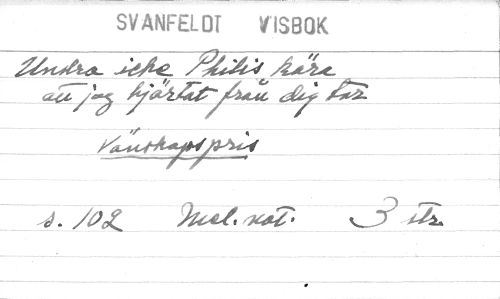 SVANFELDT VISBOK
Undra icke Philis kära
att jag hjärtat från dig tar
Vänskapspris
s. 102 Mel. not. 3 str.